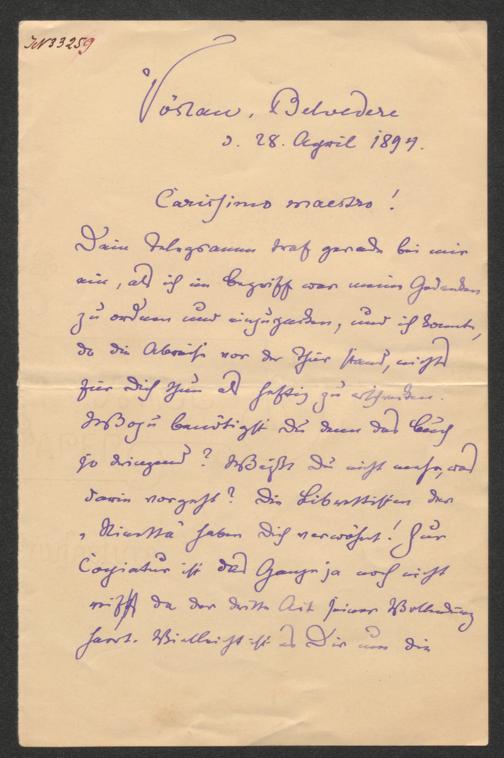 IN 33259
Vöslau, Belvedere
d. 28. April 1894.
Carissimo maestro!
Dein Telegramm traf gerade bei mir
ein, als ich im Begriff war meine Gedanken
zu ordnen und einzupacken, und ich konnte,
da die Abreise vor der Thür stand, nichts
für Dich thun als heftig zu erschrecken.
Wozu benötigst Du denn das Buch
so dringend? Weißt Du nicht mehr, was
darin vorgeht? Die Librettisten der
„Ninetta" haben Dich verwöhnt! Zur
Copiatur ist das Ganze ja noch nicht
reif, da der dritte Act seiner Vollendung
harrt. Vielleicht ist es Dir um die